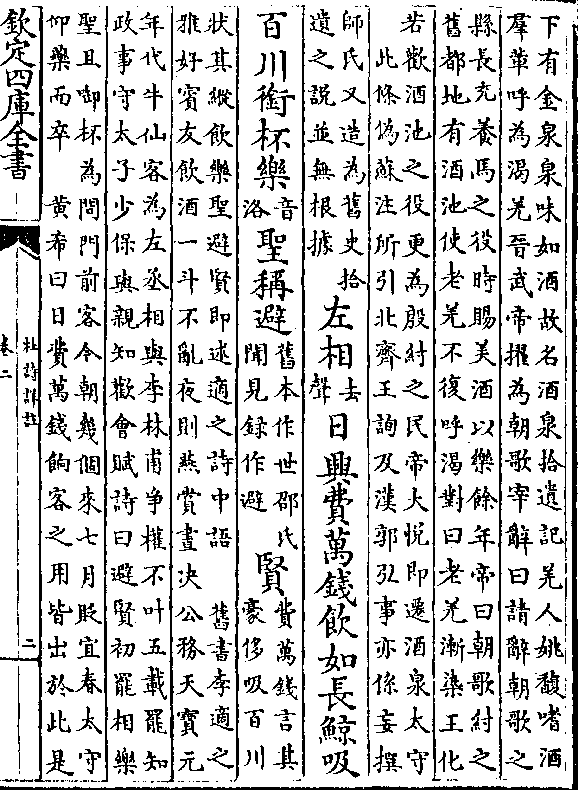 下有金泉泉味如酒故名酒泉拾遺記羌人姚馥嗜酒
羣輩呼為渴羌晉武帝擢為朝歌宰辭曰請辭朝歌之
縣長充養馬之役時賜美酒以樂餘年帝曰朝歌紂之
舊都地有酒池使老羌不復呼渴對曰老羌漸染王化
若歡酒池之役更為殷紂之民帝大悅即遷酒泉太守
此條偽蘇注所引北齊王詢及漢郭弘事亦係妄撰
師氏又造為舊史拾遺之說並無根據 左相去聲日興費萬錢飲如長鯨吸
百川銜杯樂音洛聖稱避舊本作世邵氏聞見録作避賢費萬錢言其豪侈吸百川
狀其縱飲樂聖避賢即述適之詩中語 舊書李適之
雅好賓友飲酒一斗不亂夜則燕賞晝决公務天寶元
年代牛仙客為左丞相與李林甫爭權不叶五載罷知
政事守太子少保與親知歡會賦詩曰避賢初罷相樂
聖且啣杯為問門前客今朝幾個來七月貶宜春太守
仰藥而卒 黄希曰日費萬錢餉客之用皆出於此是
欽定四庫全書
杜詩詳註
卷二
二